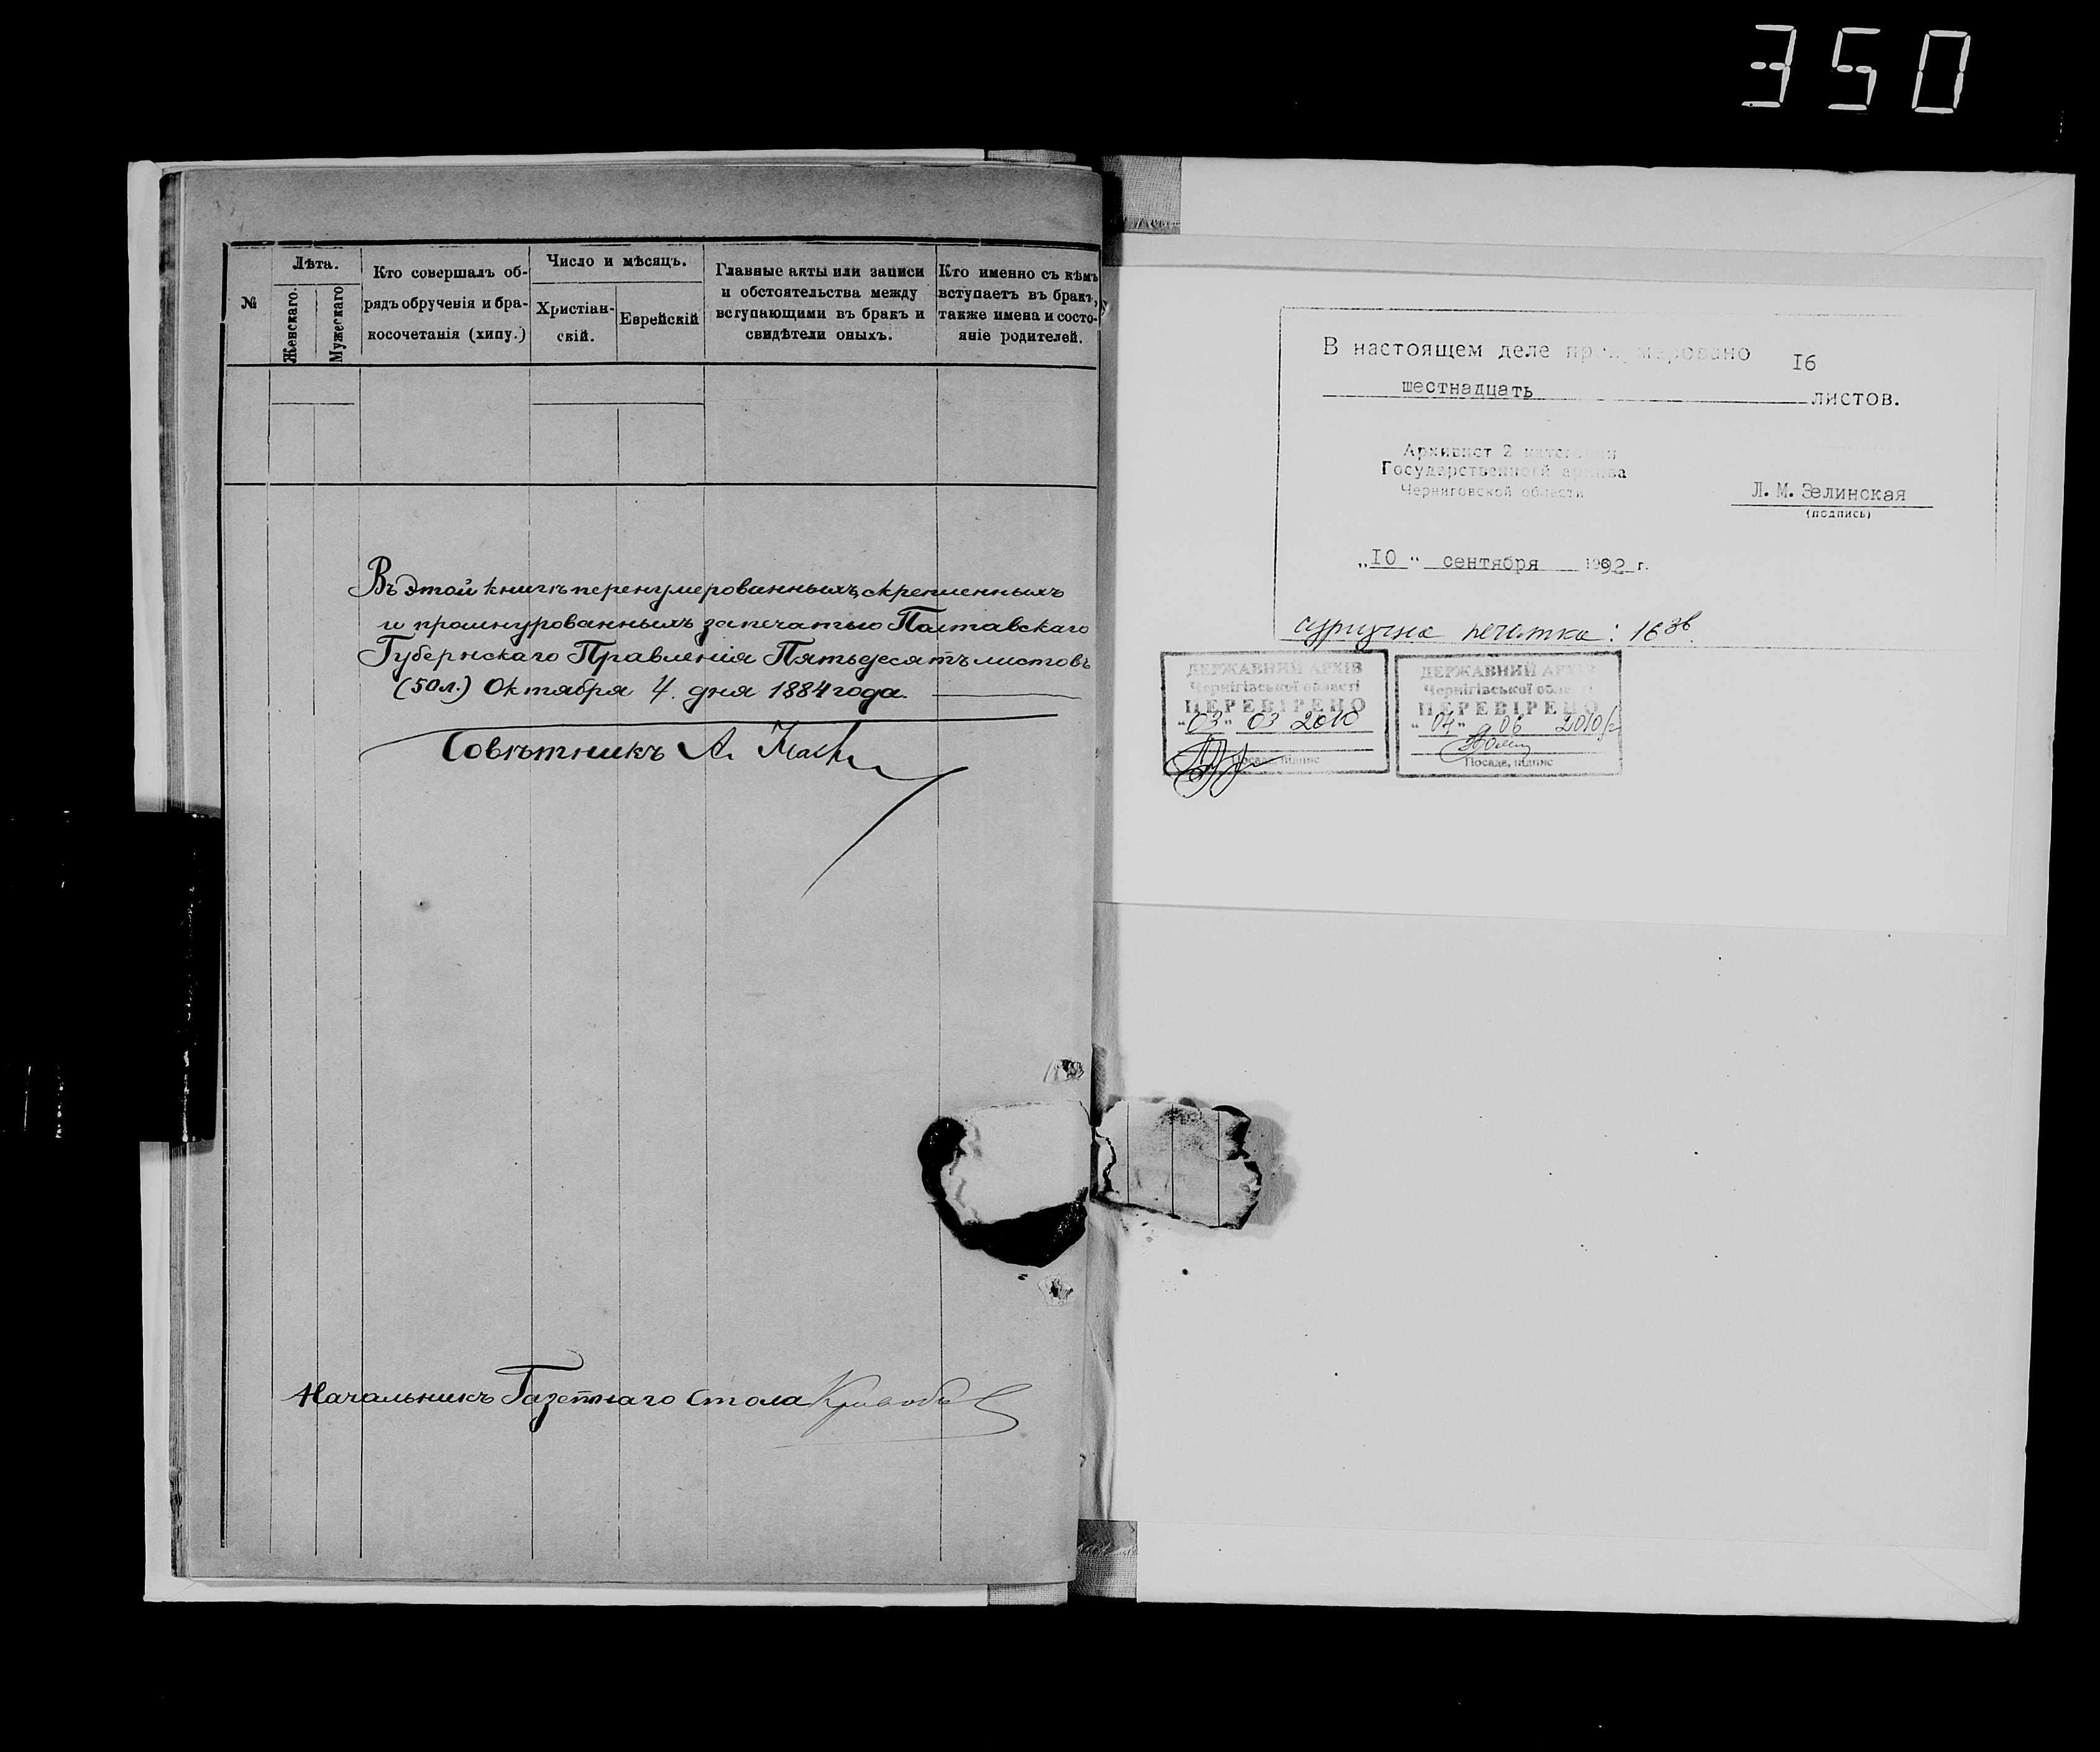 350
№
Лѣта.
Женскаго.
Мужескаго
Кто совершалъ об-
рядъ обрученія и бра-
косочетанія (хипу.)
Число и мѣсяцъ.
Христіан-
скій.
Еврейскій
Главные акты или записи
и обстоятельства между
вступающими въ бракъ и
свидѣтели оныхъ.
Кто именно съ кѣмъ
вступаетъ въ бракъ,
также имена и состо-
яніе родителей.
Въ этой книгѣ перенумерованныхъ, скрепленныхъ
и прошнурованныхъ за печатью Полтавскаго
Губернскаго Правленія Пятьдесятъ листовъ
(50 л.) Октября 4. дня 1884 года.
Совѣтникъ А.
Начальникъ Газетнаго Стола
В настоящем деле пронумеровано 16
шестнадцать листов.
Архивист 2 категории
Государственного архива
Черниговской области
Л. М. Зелинская
(подпись)
„10“ сентября 1992 г.
сургучна печатка: 16 зв.
ДЕРЖАВНИЙ АРХІВ
Чернігівської області
ПЕРЕВІРЕНО
"03" 03 2010
Посада, підпис
ДЕРЖАВНИЙ АРХІВ
Чернігівської області
ПЕРЕВІРЕНО
"04" 06 2010 р
Посада, підпис